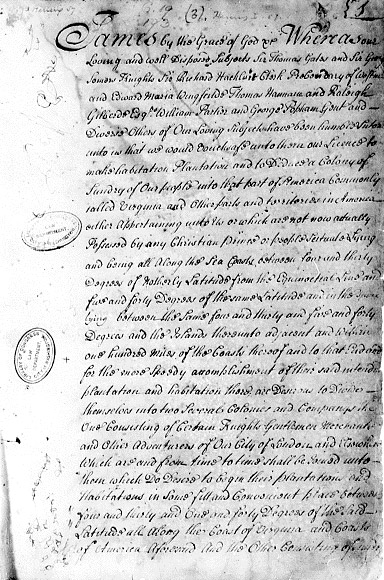 (3)
James by the Grace of God &c Whereas our
Loving and well Disposed Subjects Sir Thomas Gates and Sir George
Somers Knights Sir Richard Hackluit Clerk Prebendary of Westminster
and Edward Maria Wingfield Thomas Hannam and Raleigh
Gilberde Esqrs William Parker and George Popham Gent and
Diverse Others of Our Loving Subjects have been humble Suitors
unto us that we would vouchsafe unto them our Licence to
make habitation Plantation and to Deduce a Colony of
Sundry of Our people into that part of America Commonly
called Virginia and Other parts and territories in America
either Appertaining unto Us or which are not now actually
Possessed by any Christian prince or people Scituate Lying
and being all Along the Sea Coasts between four and thirty
Degrees of Northerly Latitude from the Equinoctial Line and
five and forty Degrees of the same Latitude and in the
lying between the Same four and thirty and five and forty
Degrees and the Islands thereunto adjacent and Within
one hundred Miles of the Coasts thereof and to that End and
for the more speedy accomplishment of their said intended
plantation and habitation there are Desirous to Divide
themselves into two Several Colonies and Companys the
One Consisting of Certain Knights Gentlemen Merchants
and Other Adventurers of Our City of London and Elsewhere
Which are and from time to time shall be Joined unto
them which Do Desire to begin their plantations and
habitations in Some fitt and Convenient place between
four and thirty and One and forty Degrees of the Said
Latitude all Along the Coast of Virginia and Coasts
of America Aforesaid And the Other Consisting of